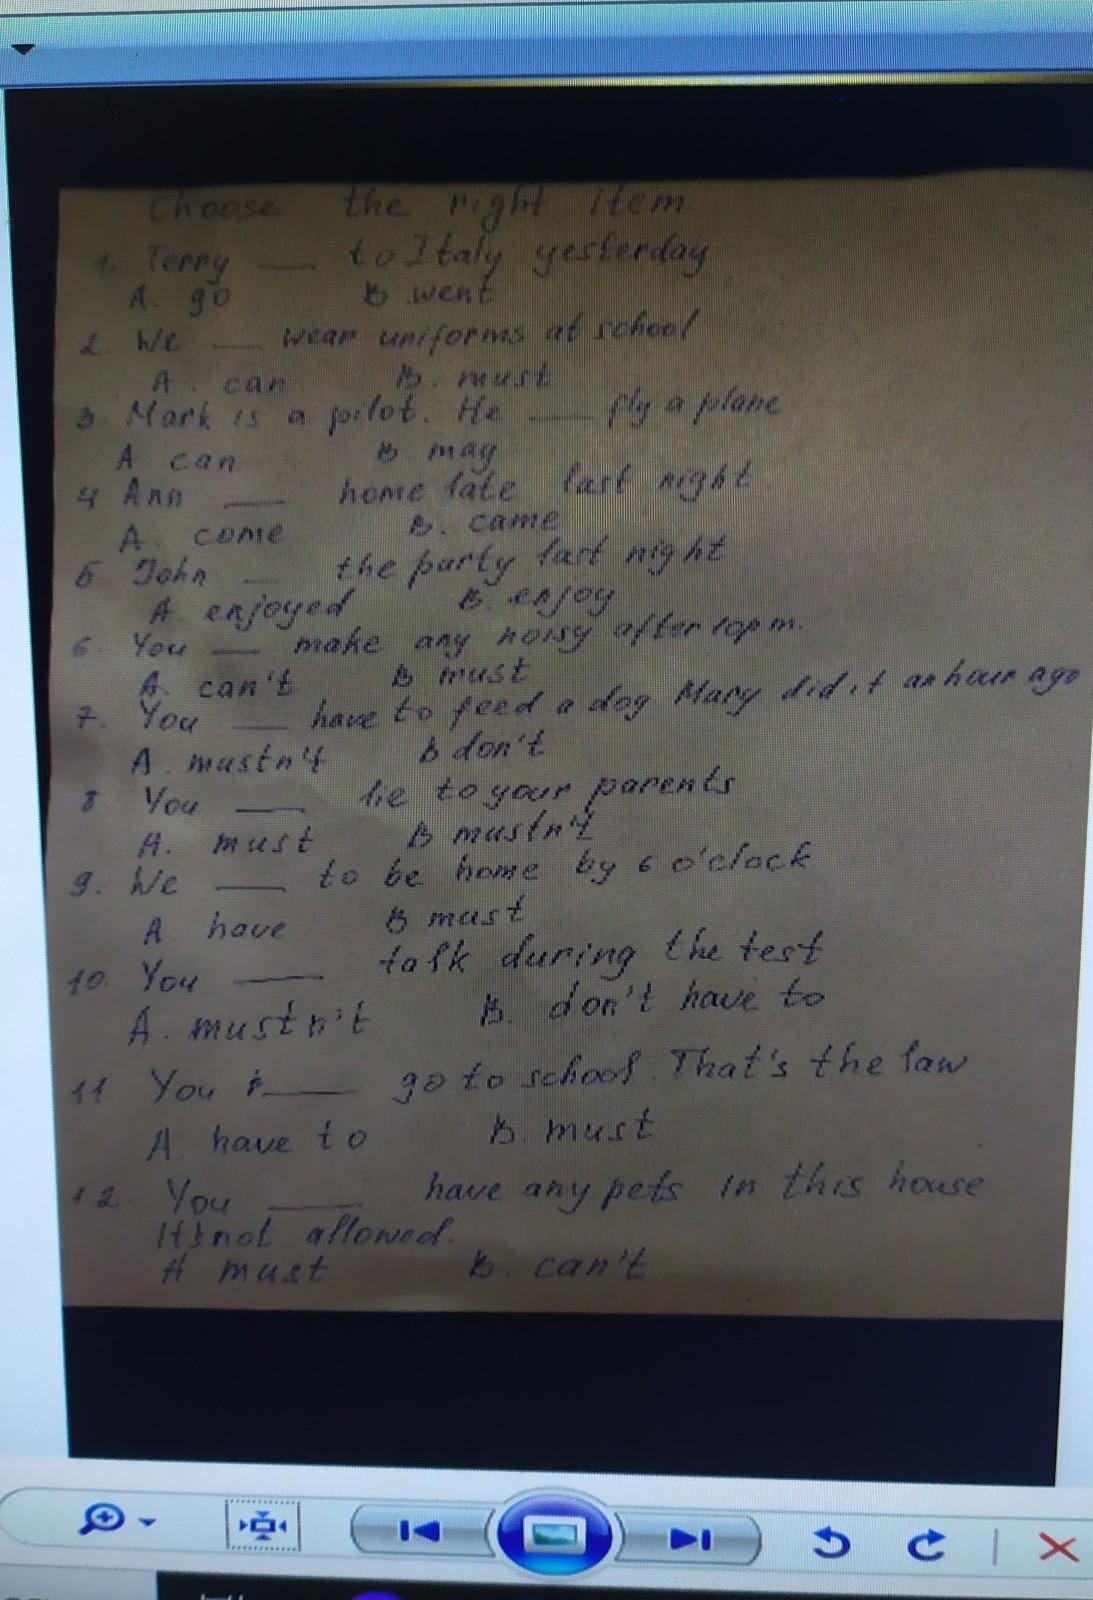 Choose the right item.
1. Terry ___ to Italy yesterday
A. go B. went
2 We ___ wear uniforms at school
A. can B. must
3 Mark is a pilot. He ___ fly a plane
A can B. may
4 Ann ___ home late last night.
A. come B. came
5 John ___ the party last night
A enjoyed B. enjoy
6. You ___ make any noisy after 10pm.
A. can't B must
7. You ___ have to feed a dog Mary did it an hour ago
A. mustn't B don't
8 You ___ lie to your parents
A. must B mustn't
9. We ___ to be home by 6 o'clock
A have B must
10. You ___ talk during the test
A. mustn't B. don't have to
11 You ___ go to school. That's the law
A have to B. must
12 You ___ have any pets in this house
It's not allowed.
A must B. can't